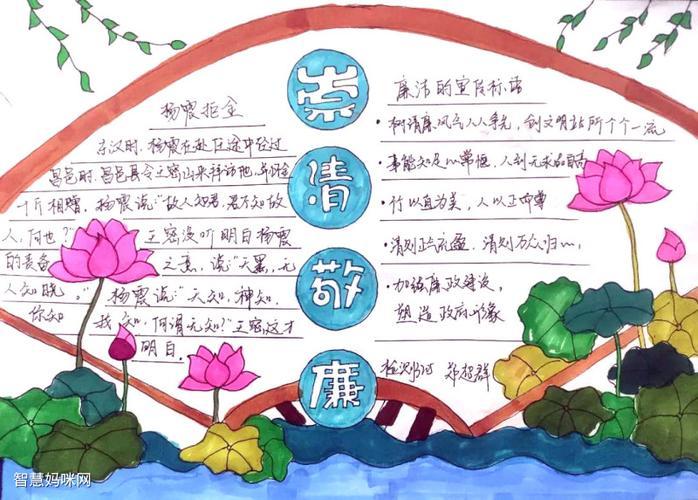 崇
清
敬
廉
杨震拒金
东汉时，杨震在赴任途中经过
昌邑时，昌邑县令王密出来拜访他，并怀金
十斤相赠，杨震说："故人知君，君不知故
人，何也？" 王密没听明白杨震
的责备 之意，说："天黑，无
人知晓。" 杨震说："天知，神知，
你知 我知，何谓无知？"王密这才
明白。
廉洁的宣传标语
·树清廉风气人人争先，创文明站所个个一流
·事能知足心常惬，人到无求品自高
·竹以直为美，人以正为尊
·清则正气充盈，清则万众归心
·加强廉政建设，
塑造政府形象
郑超群
智慧妈咪网